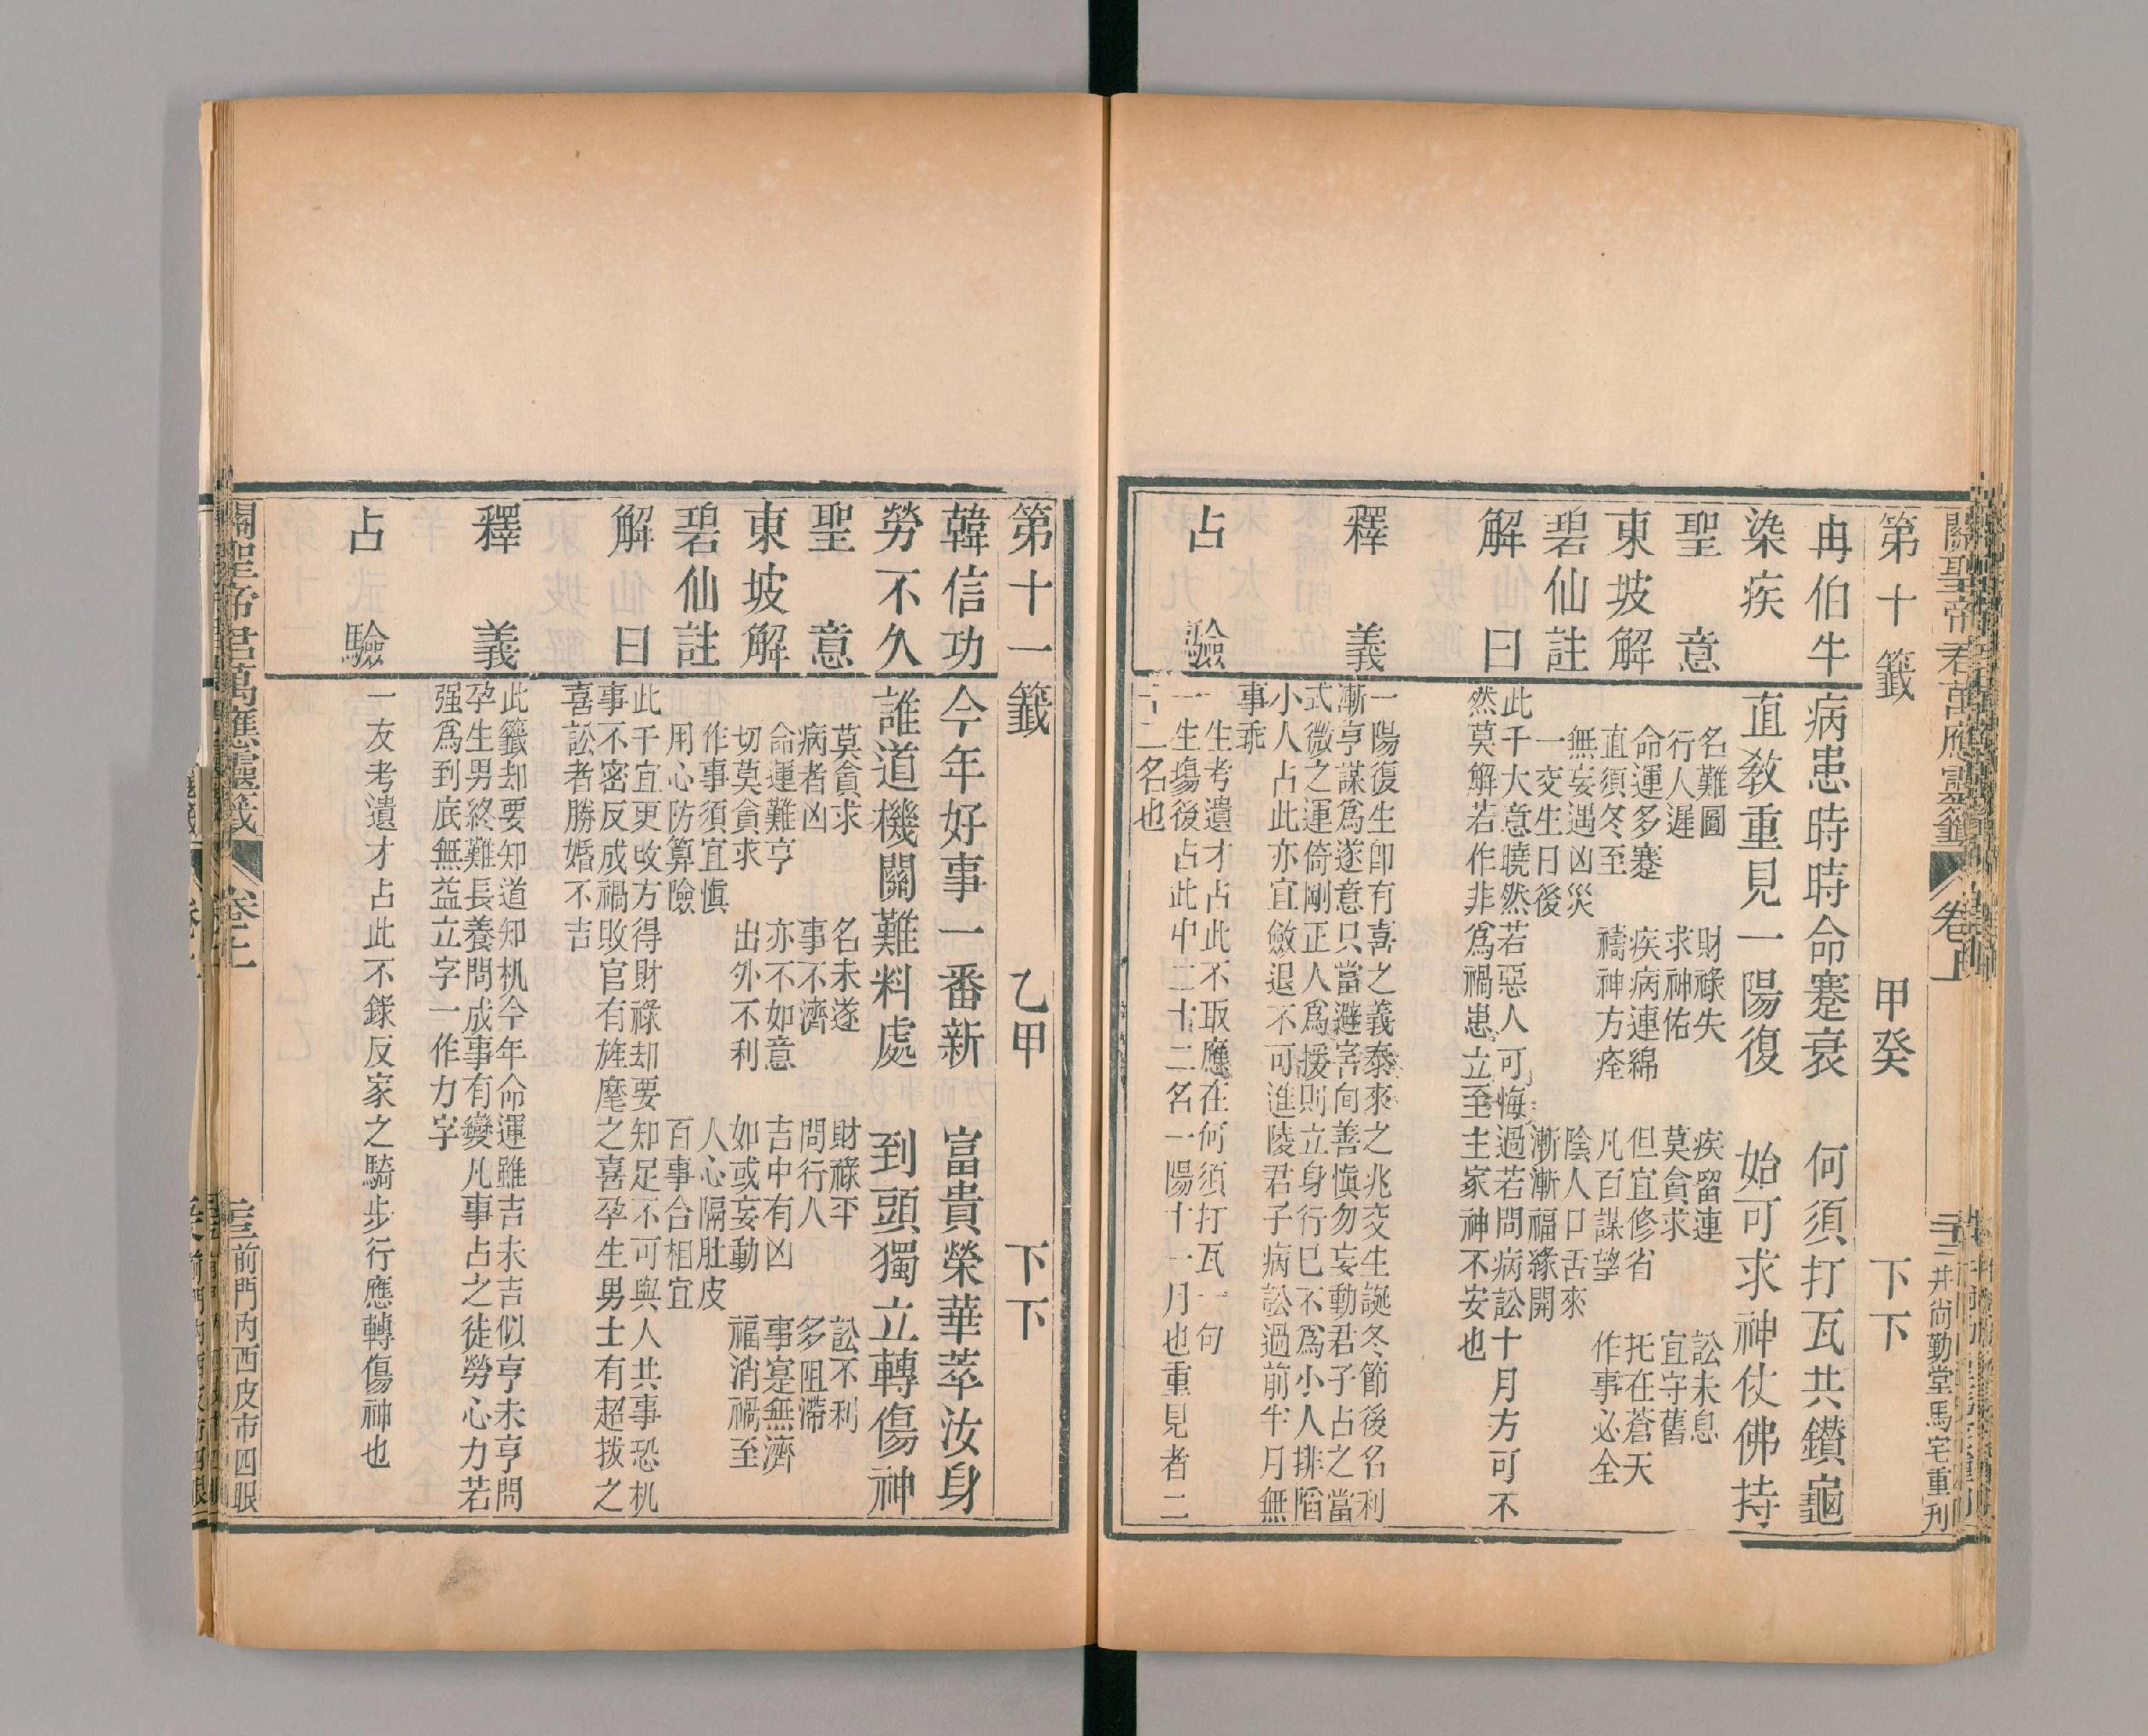 關聖帝君萬應靈籤 卷上 三二 井尚勤堂馬宅重刊
第十籤 甲癸 下下
冉伯牛 病患時時命蹇衰 何須打瓦共鑽龜
染疾 直教重見一陽復 始可求神仗佛持
聖意 名難圖 財祿失 疾留連 訟未息
行人遲 求神佑 莫貪求 宜守舊
東坡解 命運多蹇 疾病連綿 但宜修省 托在蒼天
直須冬至 禱神方痊 凡百謀望 作事必全
碧仙註 無妄遇凶災 陰人口舌來
一交生日後 漸漸福緣開
解曰 此千大意曉然若惡人可悔過若問病訟十月方可不
然莫解若作非為禍患立至主家神不安也
釋義 一陽復生卽有喜之義泰來之兆交生誕冬節後名利
漸亨謀為遂意只當避害向善慎勿妄動君子占之當
式微之運倚剛正人為援則立身行己不為小人排陷
小人占此亦宜斂退不可進陵君子病訟過前半月無
事乖
占驗 一生考遺才占此不取應在何須打瓦一句
一生塲後占此中二十二名一陽十一月也重見者二
十二名也
第十一籤 乙甲 下下
韓信功 今年好事一番新 富貴榮華萃汝身
勞不久 誰道機關難料處 到頭獨立轉傷神
聖意 莫貪求 名未遂 財祿平 訟不利
病者凶 事不濟 問行人 多阻滯
東坡解 命運難亨 亦不如意 吉中有凶 事寔無濟
切莫貪求 出外不利 如或妄動 福消禍至
碧仙註 作事須宜慎 人心隔肚皮
用心防算險 百事合相宜
解曰 此干宜更改方得財祿却要知足不可與人共事恐机
事不密反成禍敗官有旌麾之喜孕生男士有超拔之
喜訟者勝婚不吉
釋義 此籤却要知道知机今年命運雖吉未吉似亨未亨問
孕生男終難長養問成事有變凡事占之徒勞心力若
强為到底無益立字一作力字
占驗 一友考遺才占此不錄反家之騎步行應轉傷神也
關聖帝君萬應靈籤 卷上 三三 前門內西皮市四眼